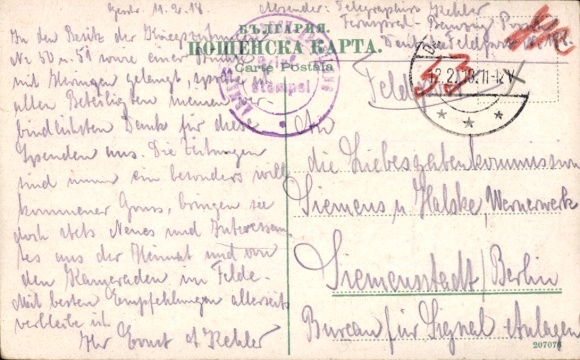 11.2.18.
Absender: Telegraphist Kehler
БЪЛГАРИЯ.
ПОЩЕНСКА КАРТА.
Carte Postale
Deutsche Feldpost
Feldpost
53
12.2.18.11-12V
Brief
Stempel
In den Besitz der Kriegszeitungen
No 50 u 51 sowie einer
mit gelangt, spreche
allen Beteiligten meinen ver-
bindlichsten Dank für die
Spenden aus. Die Zeitungen
sind immer ein besonders will-
kommener Gruss, bringen sie
doch stets Neues und Interessan-
tes aus der Heimat und von
den Kameraden im Felde.
Mit besten Empfehlungen allerseits
verbleibe ich
Ihr Ernst A Kehler
An
die Liebesgabenkommission
Siemens u Halske, Wernerwerk
Siemensstadt/Berlin
Bureau für Signal Anlagen
207078